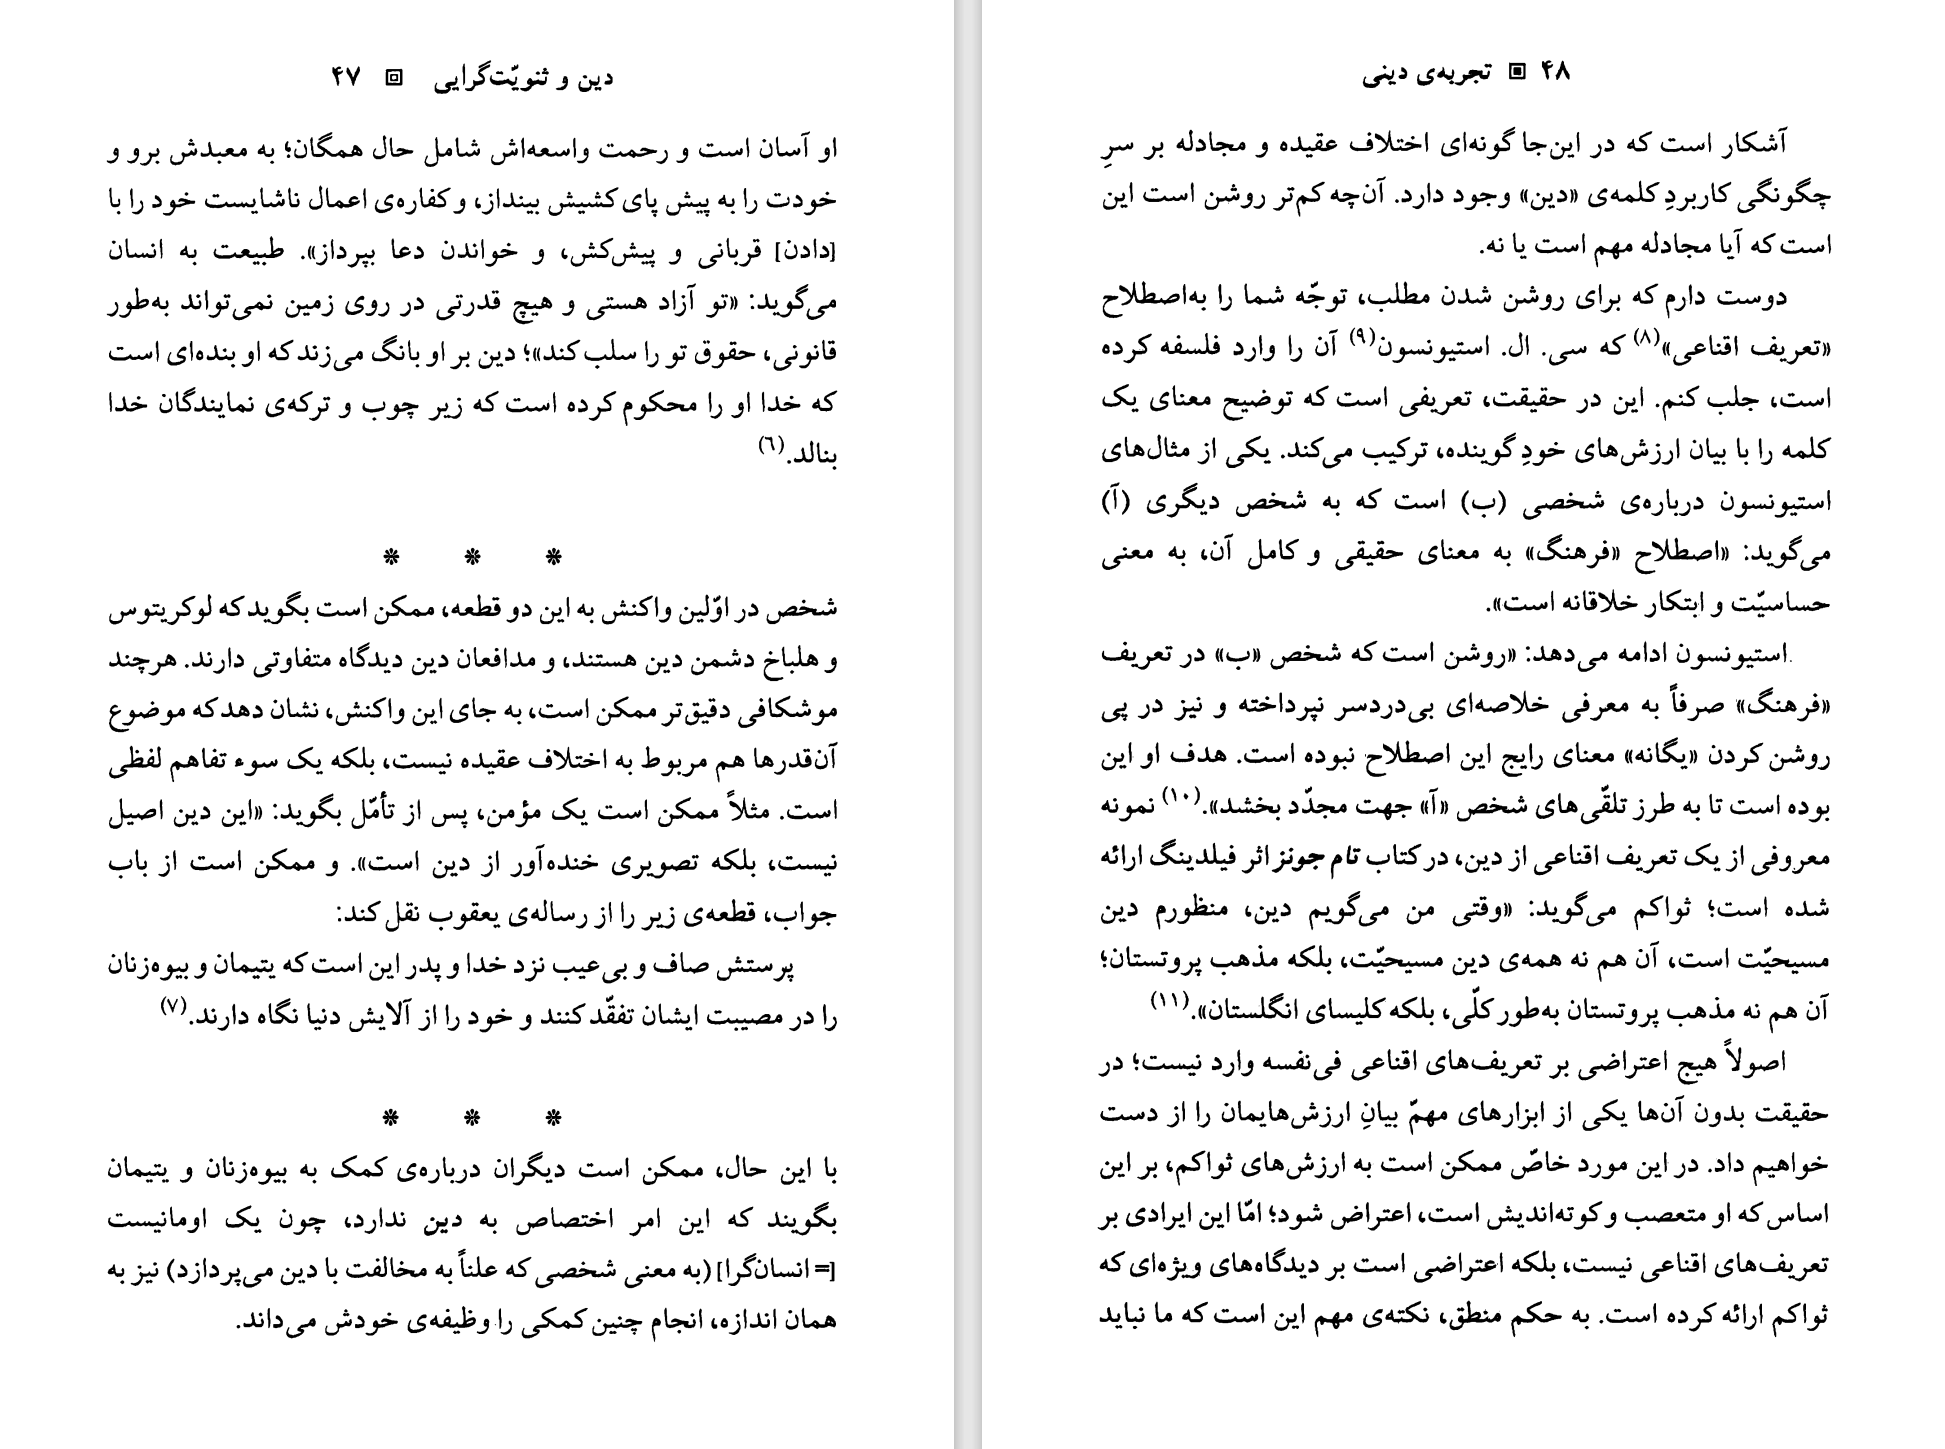 دین و ثنویّت‌گرایی ۴۷
او آسان است و رحمت واسعه‌اش شامل حال همگان؛ به معبدش برو و
خودت را به پیش پای کشیش بینداز، و کفاره‌ی اعمال ناشایست خود را با
[دادن] قربانی و پیش‌کش، و خواندن دعا بپرداز». طبیعت به انسان
می‌گوید: «تو آزاد هستی و هیچ قدرتی در روی زمین نمی‌تواند به‌طور
قانونی، حقوق تو را سلب کند»؛ دین بر او بانگ می‌زند که او بنده‌ای است
که خدا او را محکوم کرده است که زیر چوب و ترکه‌ی نمایندگان خدا
بنالد.(۶)
* * *
شخص در اوّلین واکنش به این دو قطعه، ممکن است بگوید که لوکریتوس
و هلباخ دشمن دین هستند، و مدافعان دین دیدگاه متفاوتی دارند. هرچند
موشکافی دقیق‌تر ممکن است، به جای این واکنش، نشان دهد که موضوع
آن‌قدرها هم مربوط به اختلاف عقیده نیست، بلکه یک سوء تفاهم لفظی
است. مثلاً ممکن است یک مؤمن، پس از تأمّل بگوید: «این دین اصیل
نیست، بلکه تصویری خنده‌آور از دین است». و ممکن است از باب
جواب، قطعه‌ی زیر را از رساله‌ی یعقوب نقل کند:
پرستش صاف و بی‌عیب نزد خدا و پدر این است که یتیمان و بیوه‌زنان
را در مصیبت ایشان تفقّد کنند و خود را از آلایش دنیا نگاه دارند.(۷)
* * *
با این حال، ممکن است دیگران درباره‌ی کمک به بیوه‌زنان و یتیمان
بگویند که این امر اختصاص به دین ندارد، چون یک اومانیست
[= انسان‌گرا] (به معنی شخصی که علناً به مخالفت با دین می‌پردازد) نیز به
همان اندازه، انجام چنین کمکی را وظیفه‌ی خودش می‌داند.
۴۸ تجربه‌ی دینی
آشکار است که در این‌جا گونه‌ای اختلاف عقیده و مجادله بر سرِ
چگونگی کاربردِ کلمه‌ی «دین» وجود دارد. آن‌چه کم‌تر روشن است این
است که آیا مجادله مهم است یا نه.
دوست دارم که برای روشن شدن مطلب، توجّه شما را به‌اصطلاح
«تعریف اقناعی»(۸) که سی. ال. استیونسون(۹) آن را وارد فلسفه کرده
است، جلب کنم. این در حقیقت، تعریفی است که توضیح معنای یک
کلمه را با بیان ارزش‌های خودِ گوینده، ترکیب می‌کند. یکی از مثال‌های
استیونسون درباره‌ی شخصی (ب) است که به شخص دیگری (آ)
می‌گوید: «اصطلاح «فرهنگ» به معنای حقیقی و کامل آن، به معنی
حساسیّت و ابتکار خلاقانه است».
استیونسون ادامه می‌دهد: «روشن است که شخص «ب» در تعریف
«فرهنگ» صرفاً به معرفی خلاصه‌ای بی‌دردسر نپرداخته و نیز در پی
روشن کردن «یگانه» معنای رایج این اصطلاح نبوده است. هدف او این
بوده است تا به طرز تلقّی‌های شخص «آ» جهت مجدّد بخشد».(۱۰) نمونه
معروفی از یک تعریف اقناعی از دین، در کتاب تام جونز اثر فیلدینگ ارائه
شده است؛ ثواکم می‌گوید: «وقتی من می‌گویم دین، منظورم دین
مسیحیّت است، آن هم نه همه‌ی دین مسیحیّت، بلکه مذهب پروتستان؛
آن هم نه مذهب پروتستان به‌طور کلّی، بلکه کلیسای انگلستان».(۱۱)
اصولاً هیج اعتراضی بر تعریف‌های اقناعی فی‌نفسه وارد نیست؛ در
حقیقت بدون آن‌ها یکی از ابزارهای مهمّ بیانِ ارزش‌هایمان را از دست
خواهیم داد. در این مورد خاصّ ممکن است به ارزش‌های ثواکم، بر این
اساس که او متعصب و کوته‌اندیش است، اعتراض شود؛ امّا این ایرادی بر
تعریف‌های اقناعی نیست، بلکه اعتراضی است بر دیدگاه‌های ویژه‌ای که
ثواکم ارائه کرده است. به حکم منطق، نکته‌ی مهم این است که ما نباید